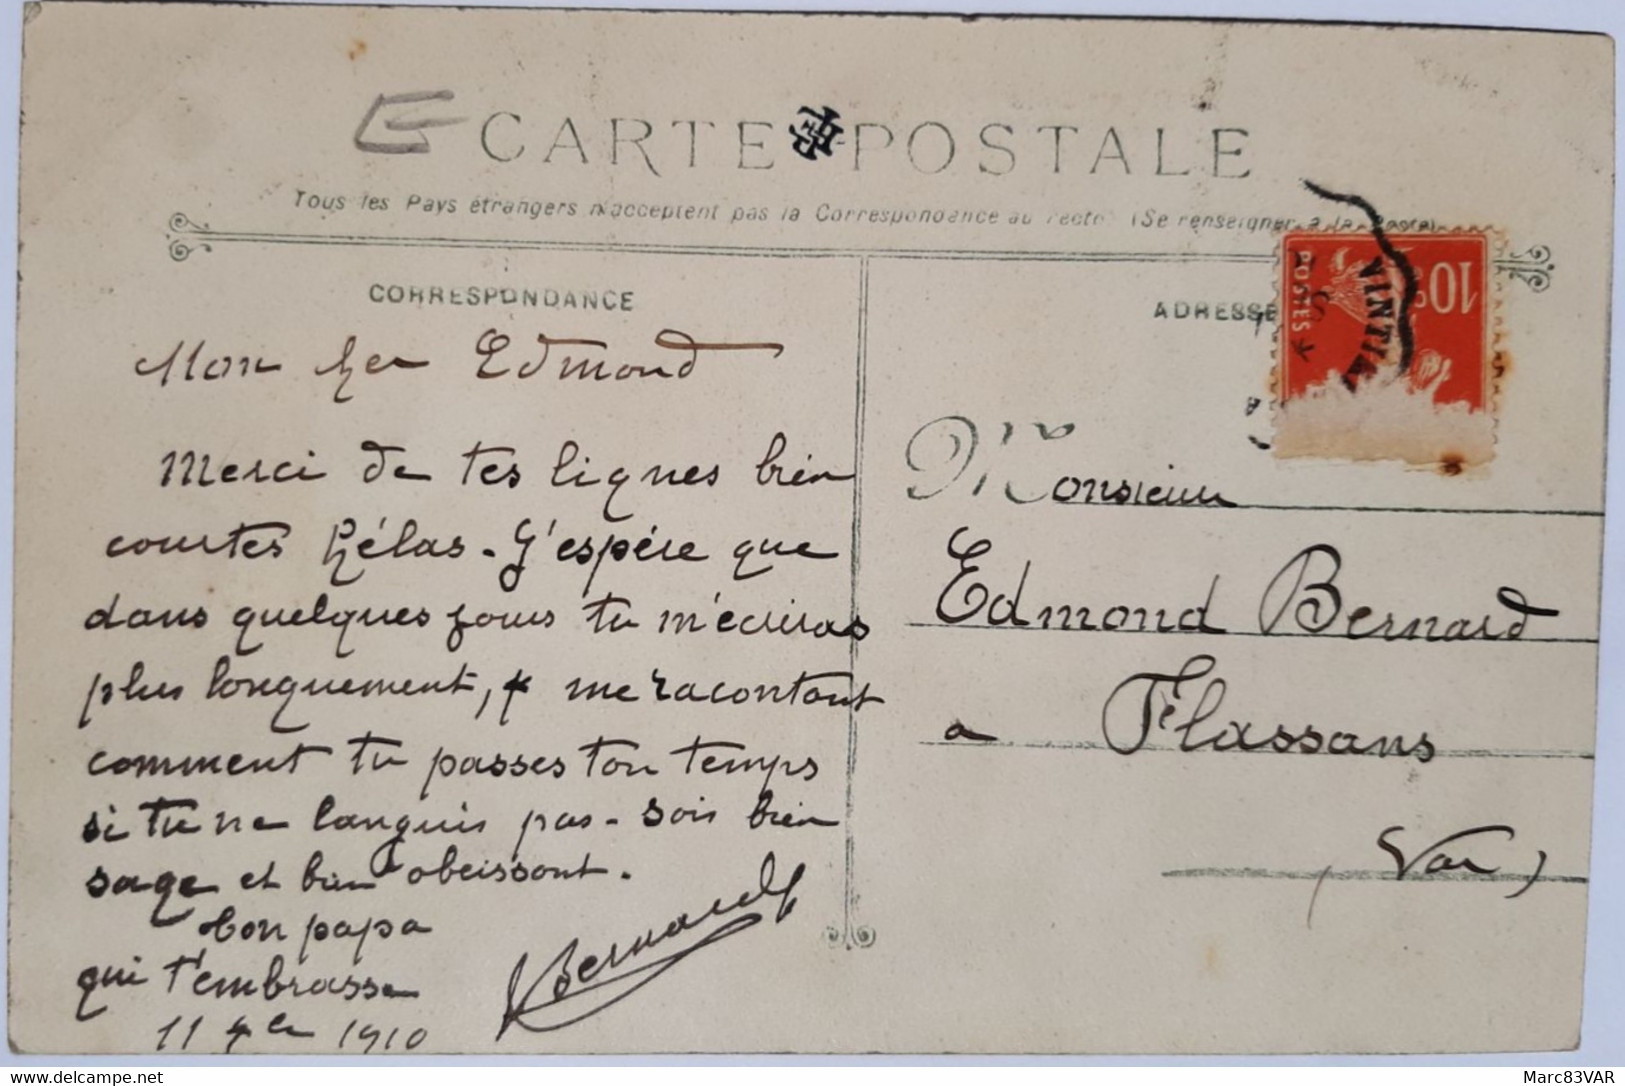 CARTE POSTALE
Tous les Pays étrangers n'acceptent pas la Correspondance au recto (Se renseigner à la Poste)
CORRESPONDANCE
ADRESSE
10c
POSTES
Mon cher Edmond
Merci de tes lignes bien
courtes hélas. J'espère que
dans quelques jours tu m'écriras
plus longuement, & me racontant
comment tu passes ton temps
si tu ne languis pas. sois bien
sage et bien obeissant.
ton papa
qui t'embrasse
Bernard
11 7bre 1910
Monsieur
Edmond Bernard
a Flassans
(Var)
Marc83VAR